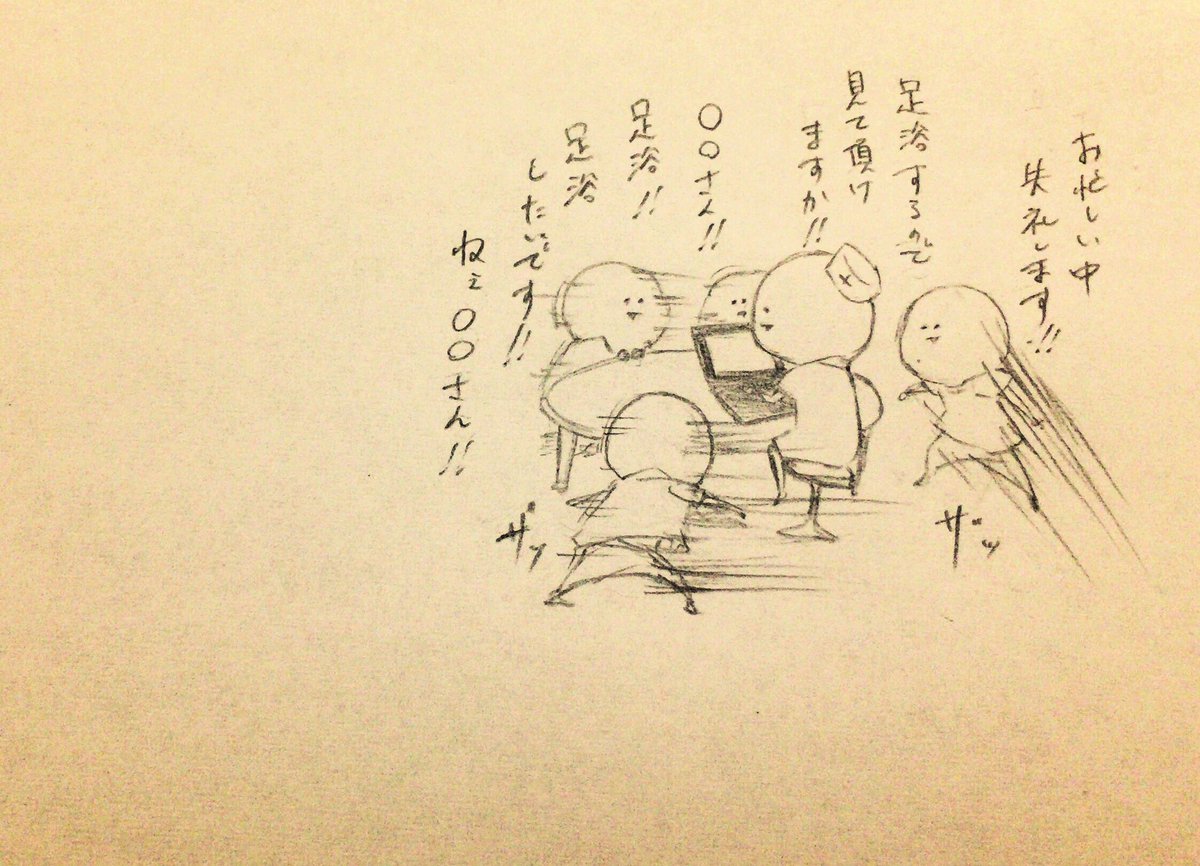 お忙しい中
失礼します!!
足浴するので
見て頂け
ますか!!
〇〇さん!!
足浴!!
足浴
したいです!!
ねぇ〇〇さん!!
ザッ
ザッ